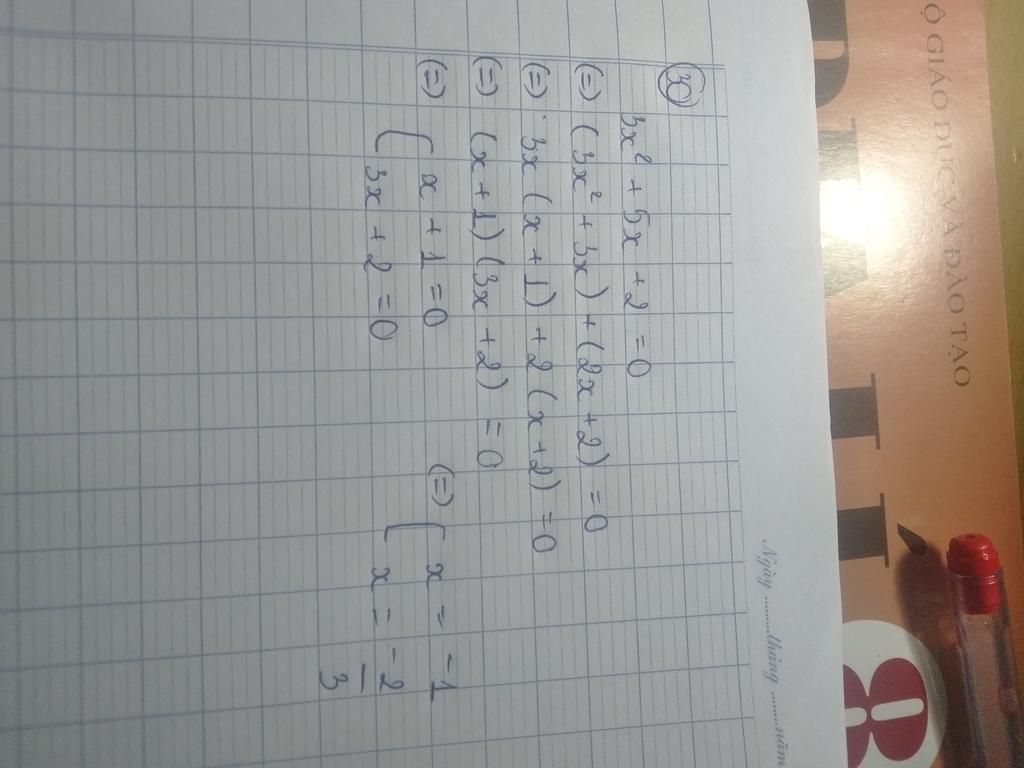 Ộ GIÁO DỤC VÀ ĐÀO TẠO
8
Ngày ......... tháng ......... năm
3c
3x² + 5x + 2 = 0
(=) (3x² + 3x) + (2x + 2) = 0
(=) 3x (x + 1) + 2 (x + 2) = 0
(=) (x + 1) (3x + 2) = 0
(=) [ x + 1 = 0 (=) [ x = -1
3x + 2 = 0 x = -2/3